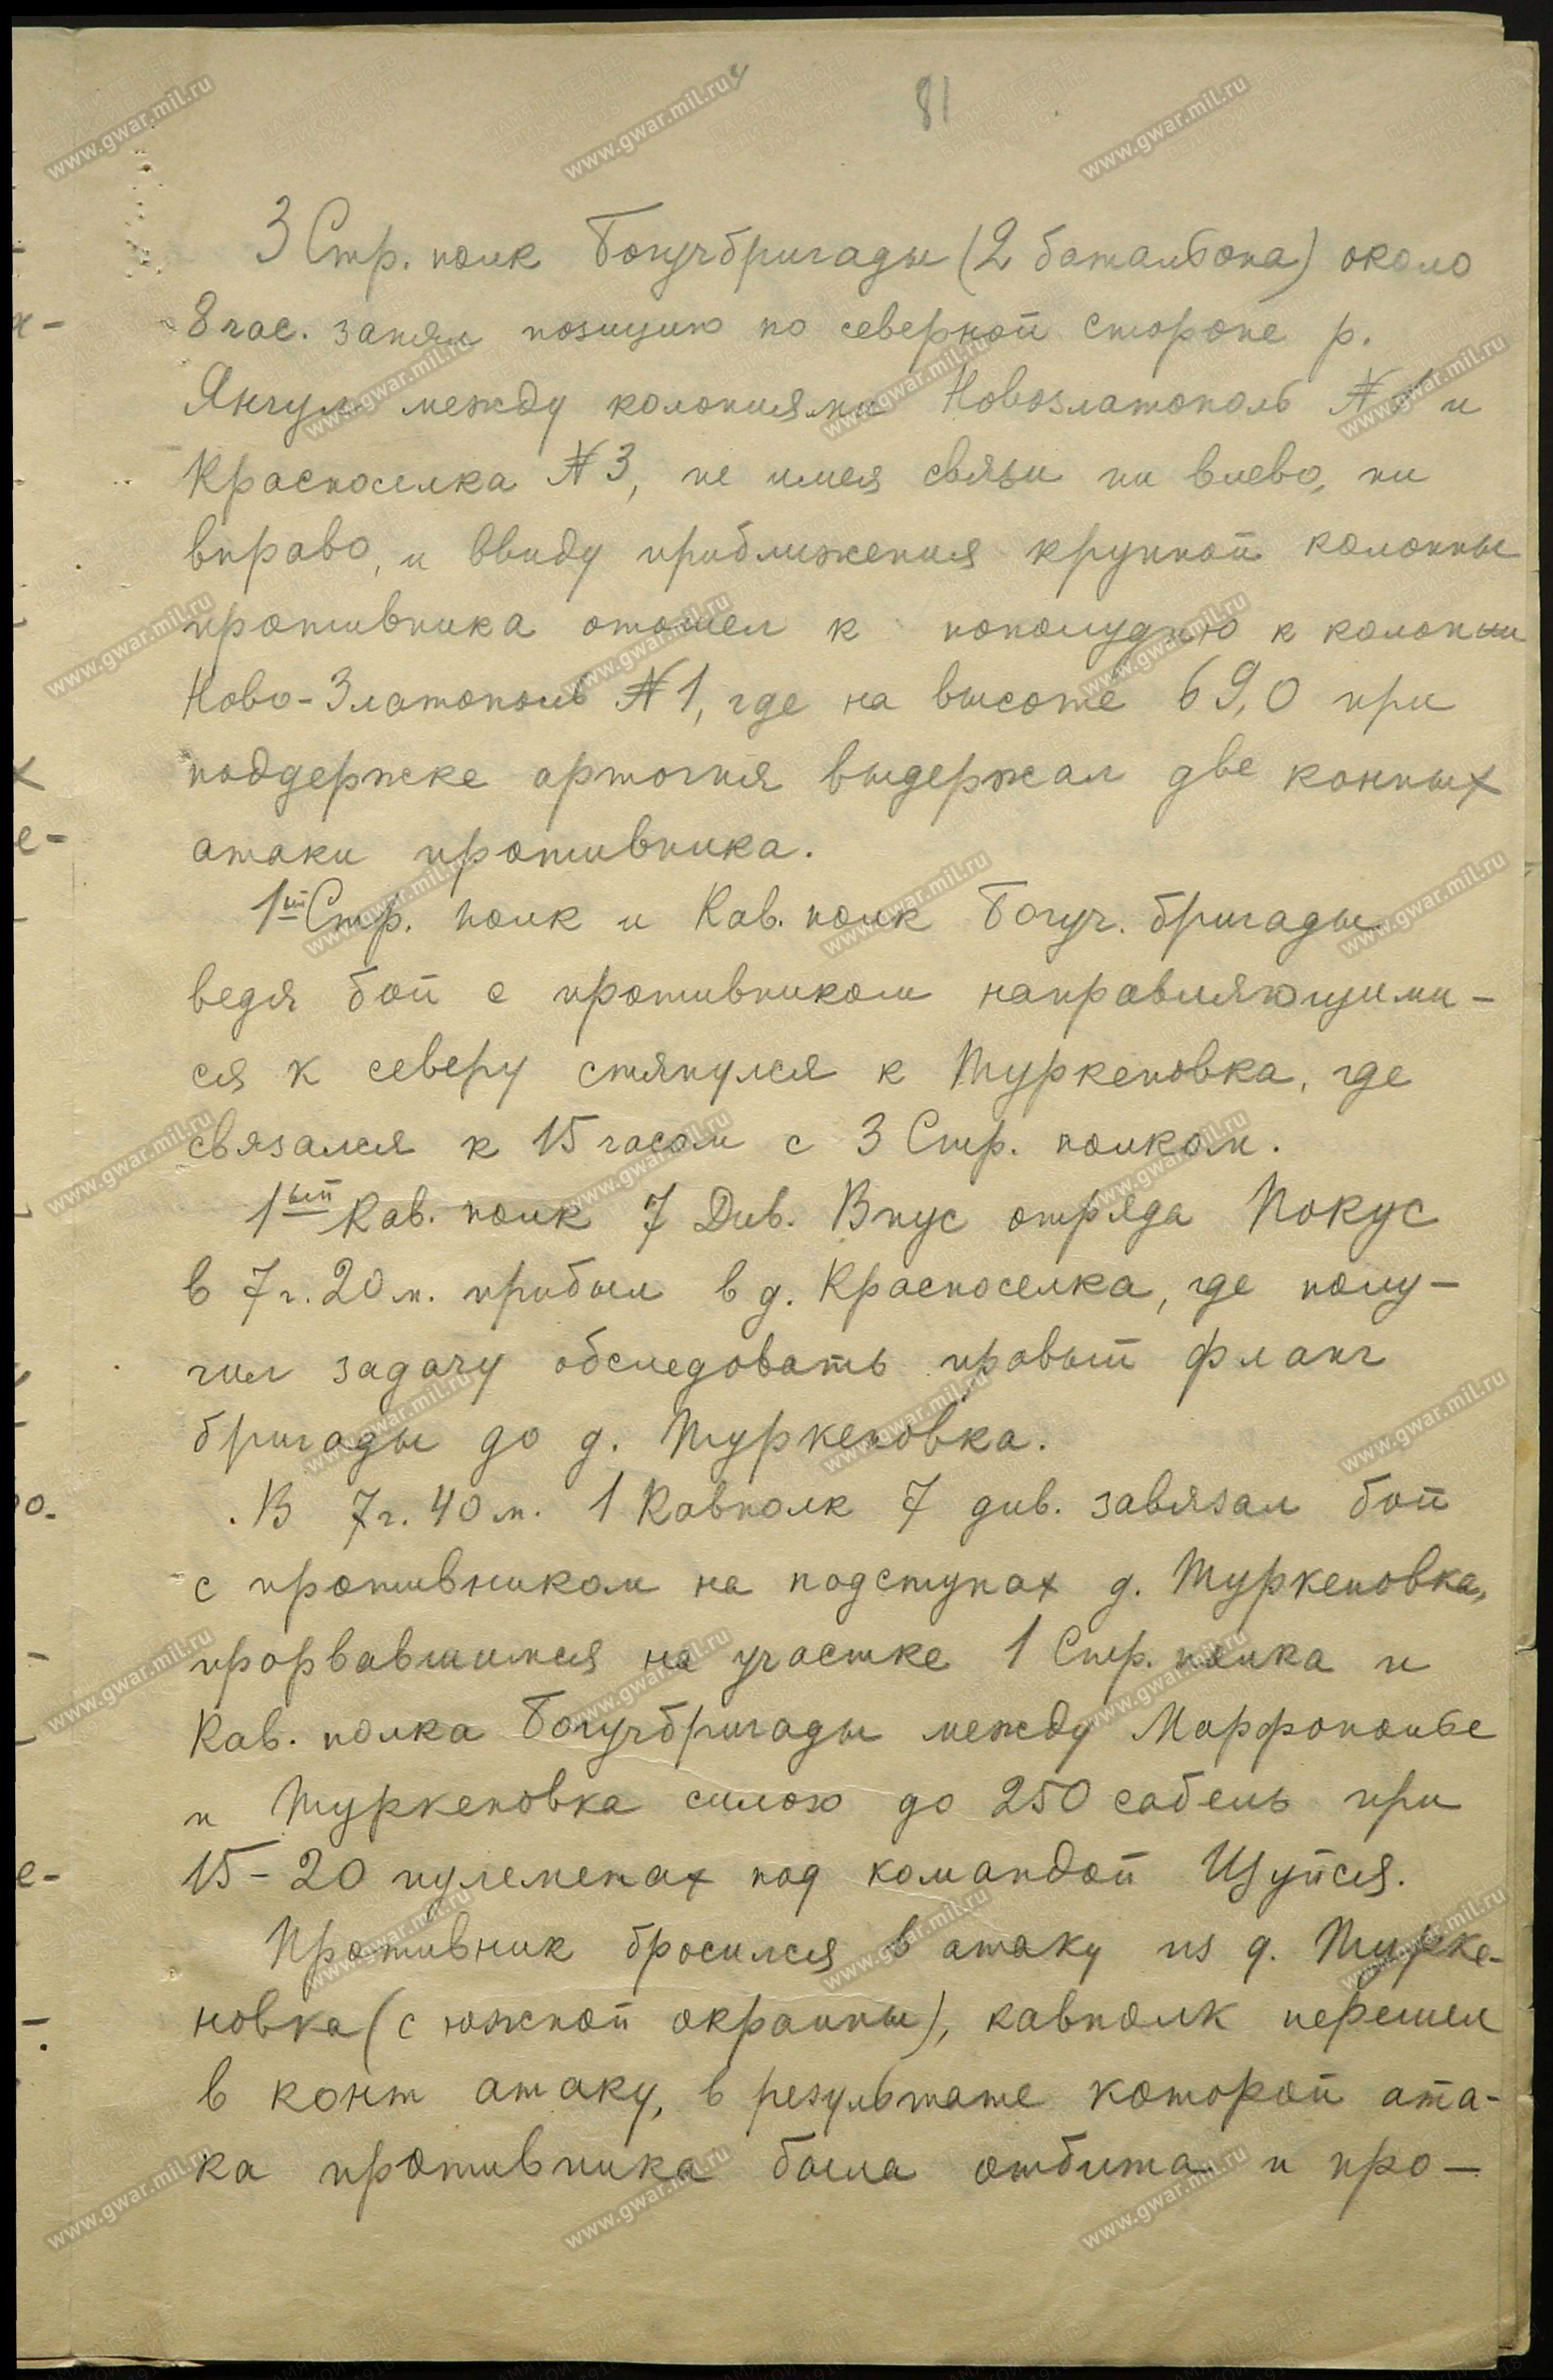 81
3 Стр. полк Богучбригады (2 батальона) около
8 час. занял позицию по северной стороне р.
Янчул между колониями Новозлатополь № 1 и
Красноселка № 3, не имея связи ни влево, ни
вправо, и ввиду приближения крупной колонны
противника отошел к пополудню к колонии
Ново-Златополь № 1, где на высоте 69,0 при
поддержке артогня выдержал две конных
атаки противника.
1ый Стр. полк и Кав. полк Богуч. бригады
ведя бой с противником направляющими-
ся к северу стянулся к Туркеновка, где
связался к 15 часам с 3 Стр. полком.
1ый Кав. полк 7 Див. Внус отряда Покус
в 7 г. 20 м. прибыл в д. Красноселка, где полу-
чил задачу обследовать правый фланг
бригады до д. Туркеновка.
В 7 г. 40 м. 1 Кавполк 7 див. завязал бой
с противником на подступах д. Туркеновка,
прорвавшимся на участке 1 Стр. полка и
Кав. полка Богучбригады между Марфополье
и Туркеновка силою до 250 сабель при
15-20 пулеметах под командой Щуйся.
Противник бросился в атаку из д. Турке-
новка (с южной окраины), кавполк перешел
в конт атаку, в результате которой ата-
ка противника была отбита и про-
www.gwar.mil.ru